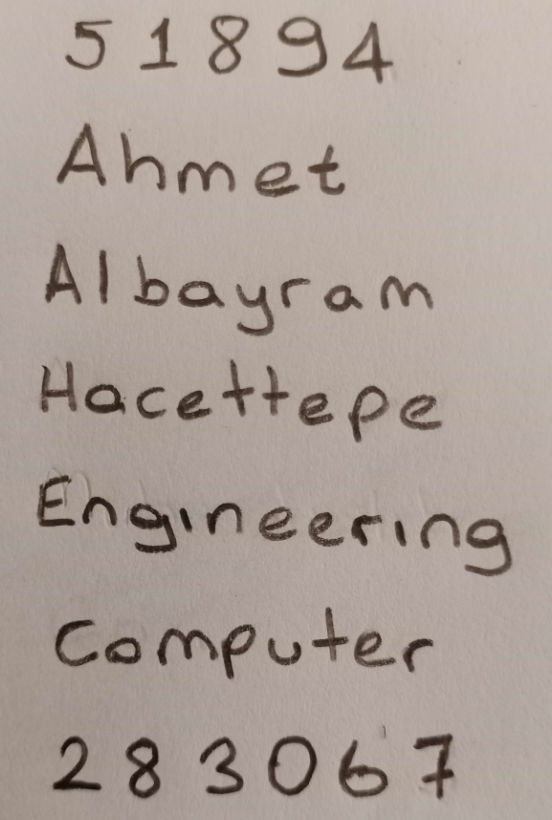 51894
Ahmet
Albayram
Hacettepe
Engineering
Computer
283067